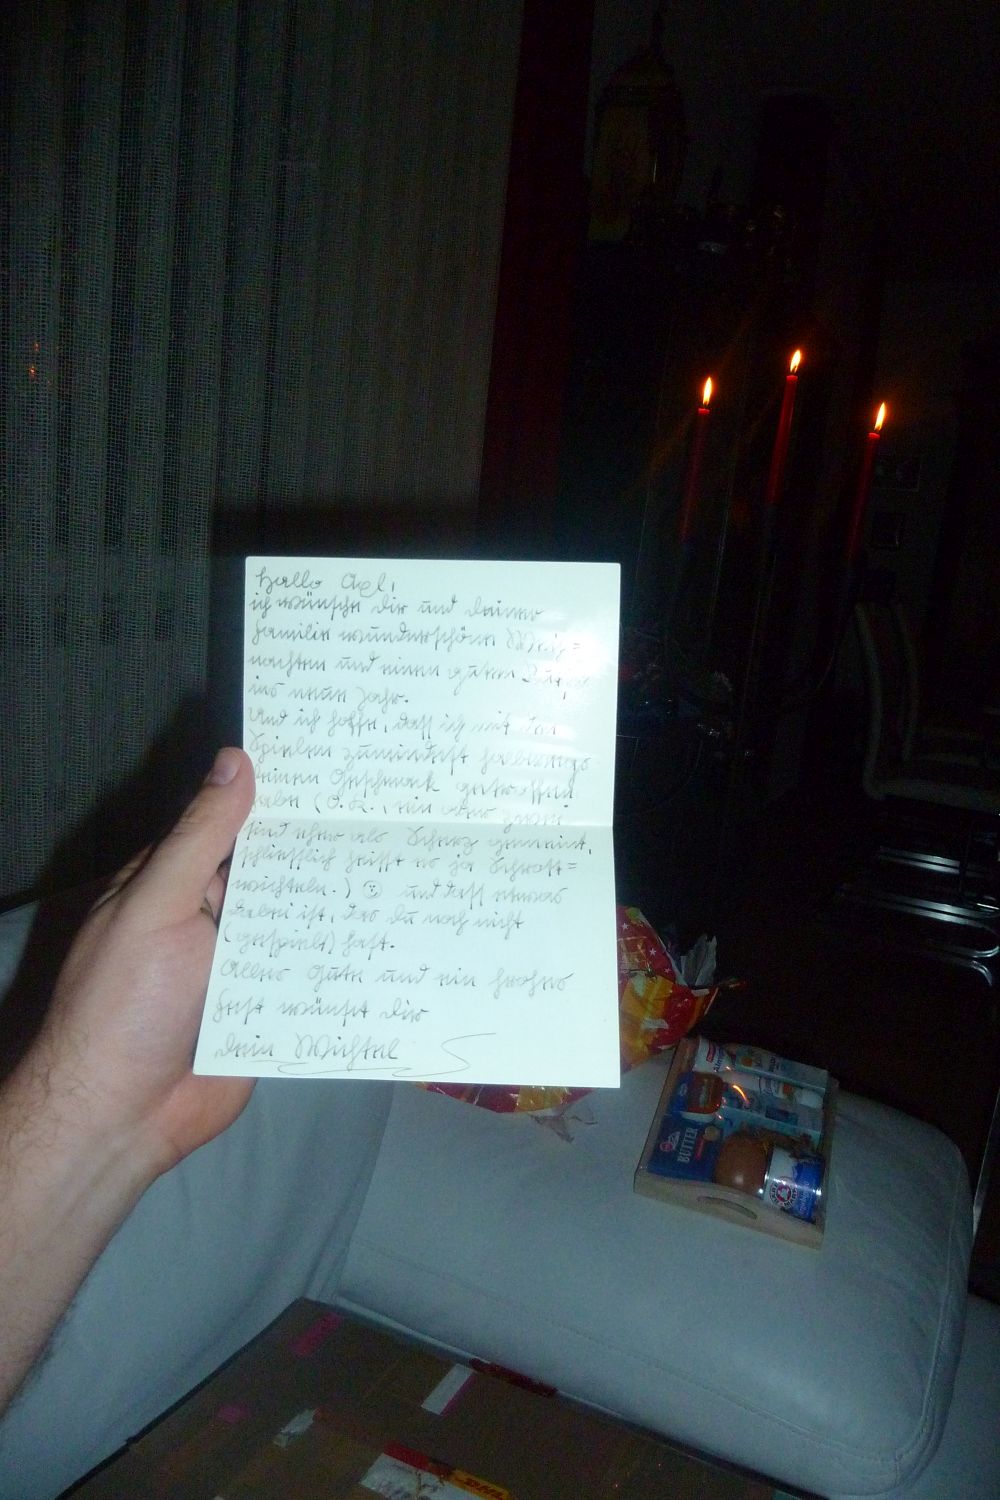 Hallo Axl,
ich wünsche Dir und deiner
Familie wunderschöne Weih=
nachten und einen guten Rutsch
ins neue Jahr.
Und ich hoffe, dass ich mit den
Spielen zumindest halbwegs
deinen Geschmack getroffen
habe (O.K., ein oder zwei
sind eher als Scherz gemeint,
schliesslich heisst es ja Schrott=
wichteln.) ☺ und dass etwas
dabei ist, das du noch nicht
(gespielt) hast.
Alles Gute und ein frohes
Fest wünscht Dir
dein Wichtel
BUTTER